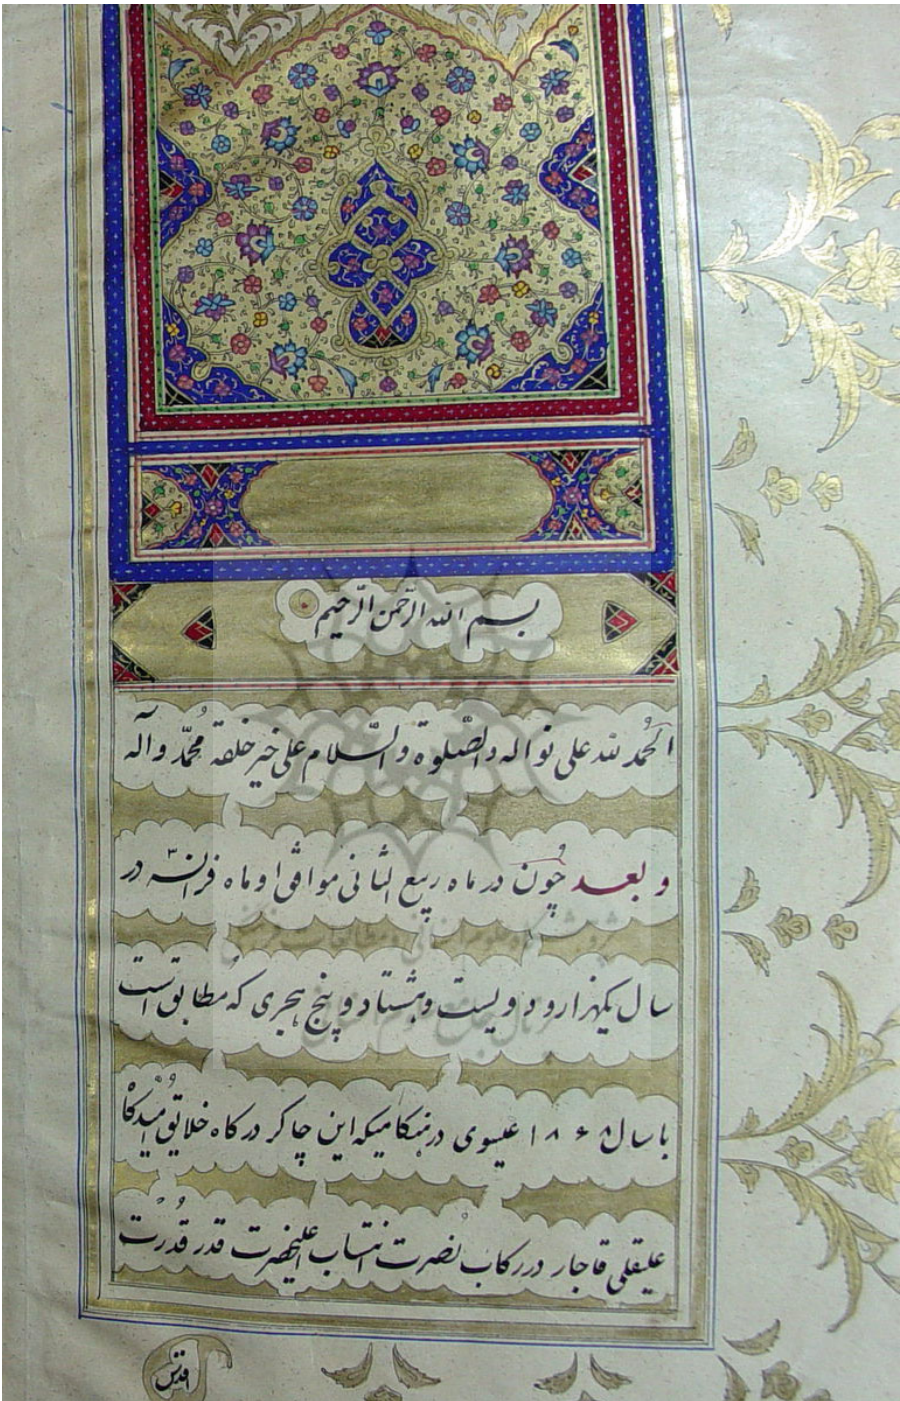 بسم الله الرّحمن الرّحیم
الحَمدُ للّه علی نواله والصّلوة والسّلام علی خیر خلقه مُحمّد وآله
و بعد چُون در ماه ربیع الثانی موافق اوماه فرانسه در
سال یکهزار و دویست و هشتاد و پنج هجری که مُطابق است
با سال ۱۸۶۸ عیسوی در هنکامیکه این چاکر درکاه خلایق اُمیدکاه
علیقلی قاجار در رکاب نصرت انتساب اعلیحضرت قدر قُدرت
اقدس
پژوهشگاه علوم انسانی و مطالعات فرهنگی
پرتال جامع علوم انسانی